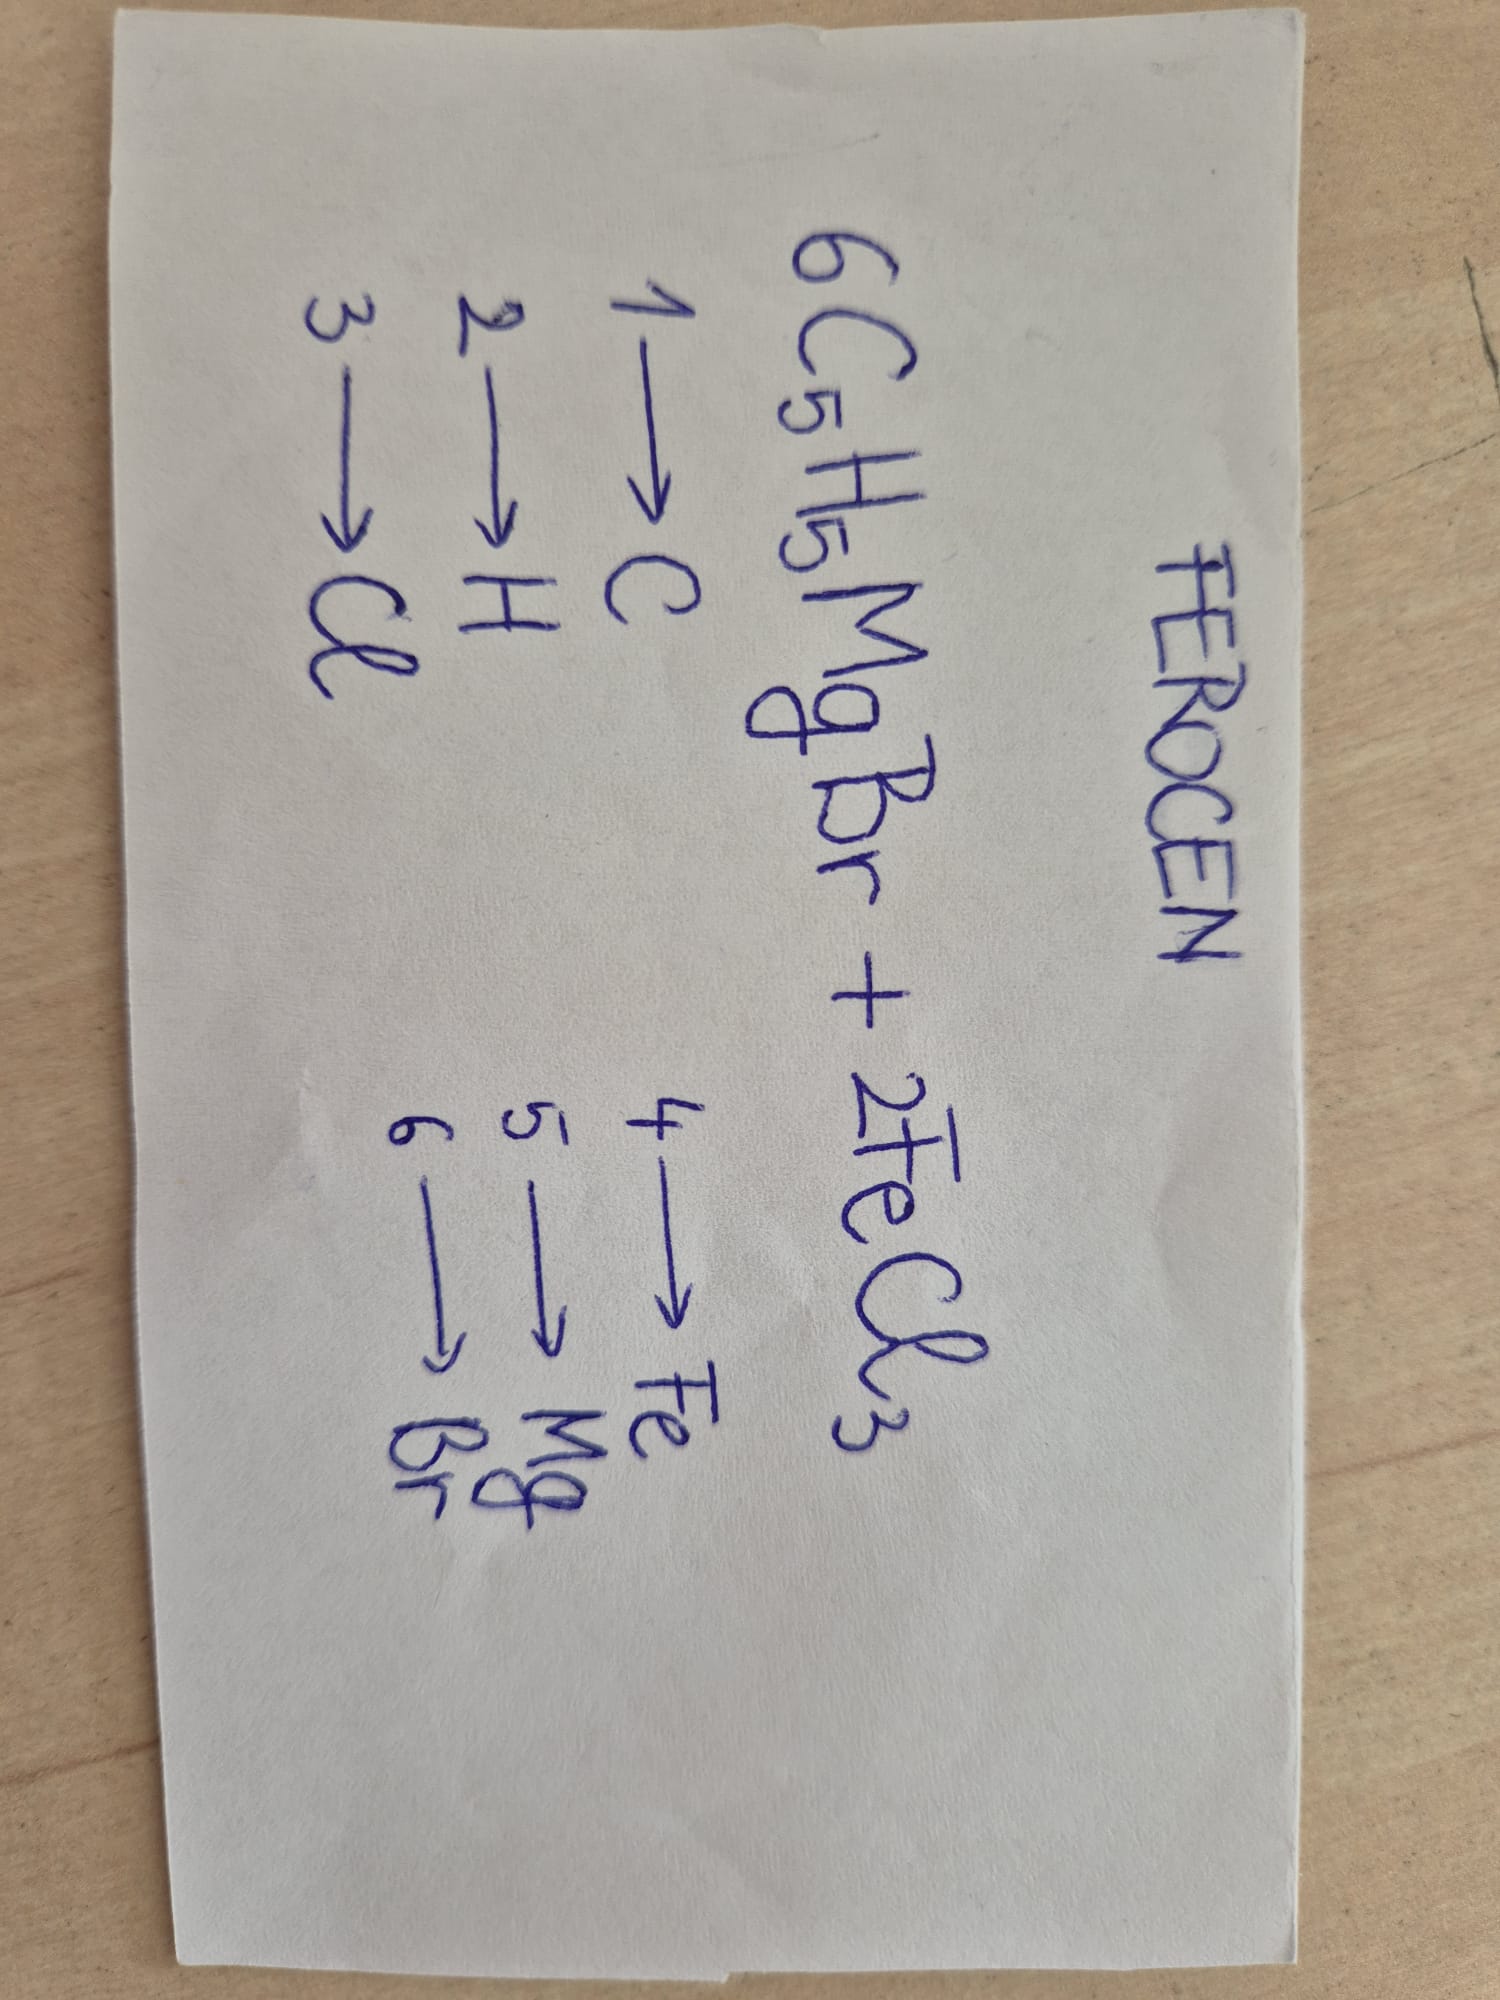 FEROCEN
6C₅H₅MgBr + 2FeCl₃
1 → C
2 → H
3 → Cl
4 → Fe
5 → Mg
6 → Br